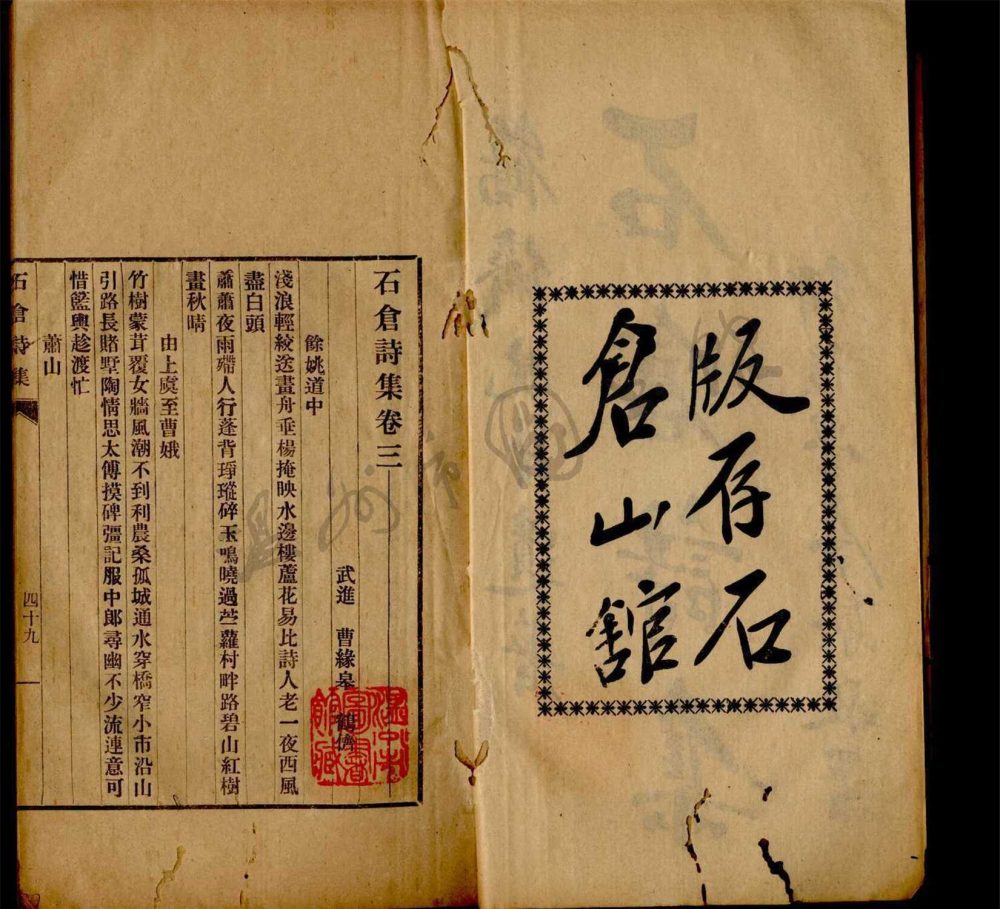 版存石
倉山館
石倉詩集卷三
武進 曹緣皋 鶴儕
餘姚道中
淺浪輕紋送畫舟垂楊掩映水邊樓蘆花易比詩人老一夜西風
盡白頭
蕭蕭夜雨殢人行蓬背琤瑽碎玉鳴曉過苧蘿村畔路碧山紅樹
畫秋晴
由上虞至曹娥
竹樹蒙茸覆女牆風潮不到利農桑孤城通水穿橋窄小市沿山
引路長賭墅陶情思太傅摸碑彊記服中郎尋幽不少流連意可
惜籃輿趁渡忙
蕭山
石倉詩集
四十九
溫州市圖書館藏